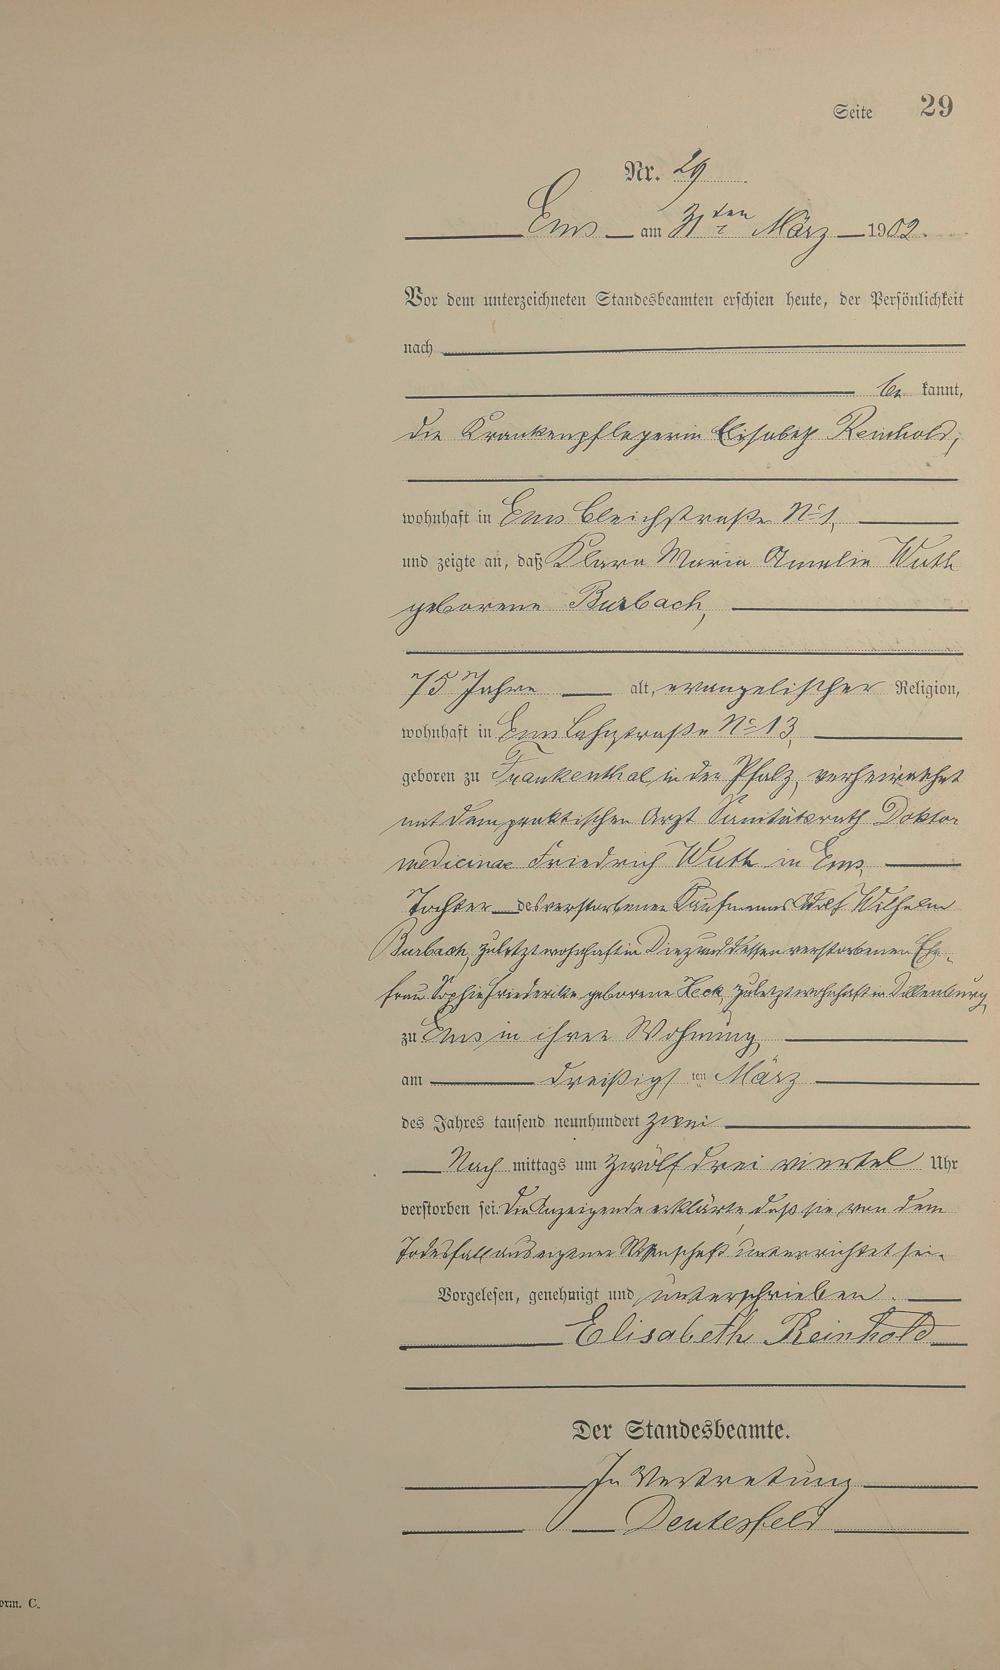 Seite 29
Nr. 29
Ems am 31ten März 1902.
Vor dem unterzeichneten Standesbeamten erschien heute, der Persönlichkeit
nach
be kannt,
die Krankenpflegerin Elisabeth Reinhold,
wohnhaft in Ems Bleichstraße No 1,
und zeigte an, daß Klara Maria Amalie Wuth
geborene Burbach,
75 Jahre alt, evangelischer Religion,
wohnhaft in Ems Lahnstraße No 13,
geboren zu Frankenthal in der Pfalz, verheirathet
mit dem praktischen Arzt Sanitätsrath Doktor
medicinae Friedrich Wuth in Ems,
Tochter des verstorbenen Kaufmanns Adolf Wilhelm
Burbach, zuletzt wohnhaft in Diez und dessen verstorbenen Ehe-
frau Sophie Friederike geborene Heck, zuletzt wohnhaft in Dillenburg,
zu Ems in ihrer Wohnung,
am dreißigsten März
des Jahres tausend neunhundert zwei
Nach mittags um zwölf drei viertel Uhr
verstorben sei. Die Anzeigende erklärte, daß sie von dem
Todesfall aus eigener Wissenschaft unterrichtet sei.
Vorgelesen, genehmigt und unterschrieben.
Elisabeth Reinhold
Der Standesbeamte.
In Vertretung
Deutesfeld
orm. C.